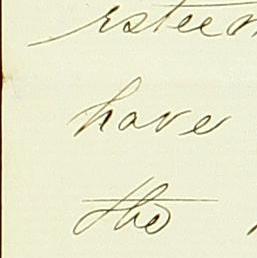 esteem
have
the